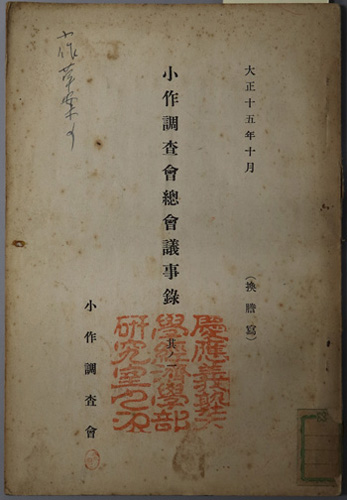 大正十五年十月
(換謄寫)
小作調査會總會議事錄 其ノ一
小作調査會
慶應義塾大
學經濟學部
研究室之印
小作草案